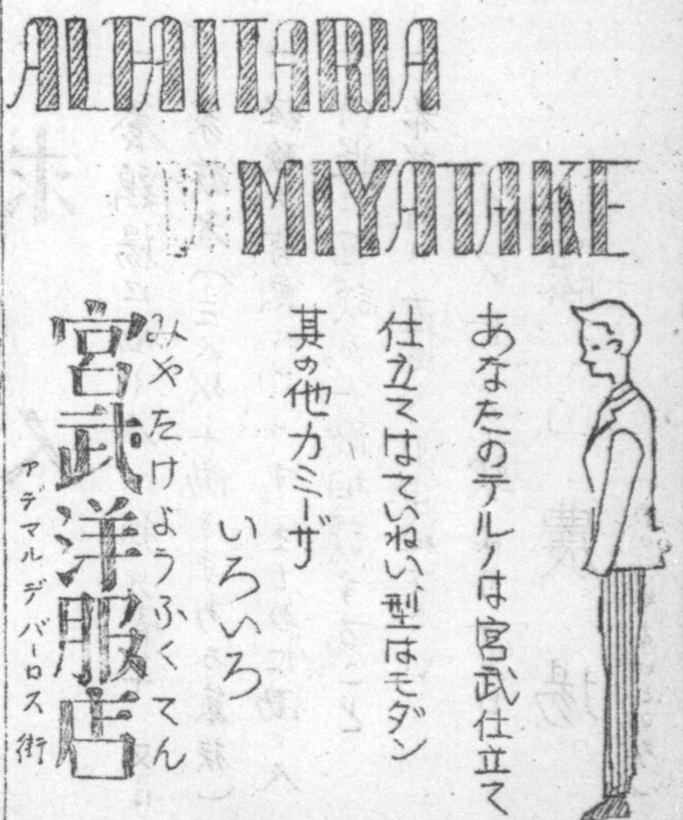 ALFAITARIA
MIYATAKE
あなたのテルノは宮武仕立て
仕立てはていねい、型はモダン
其の他カミーザ
いろいろ
みやたけようふくてん
宮武洋服店
アデマルデバーロス街